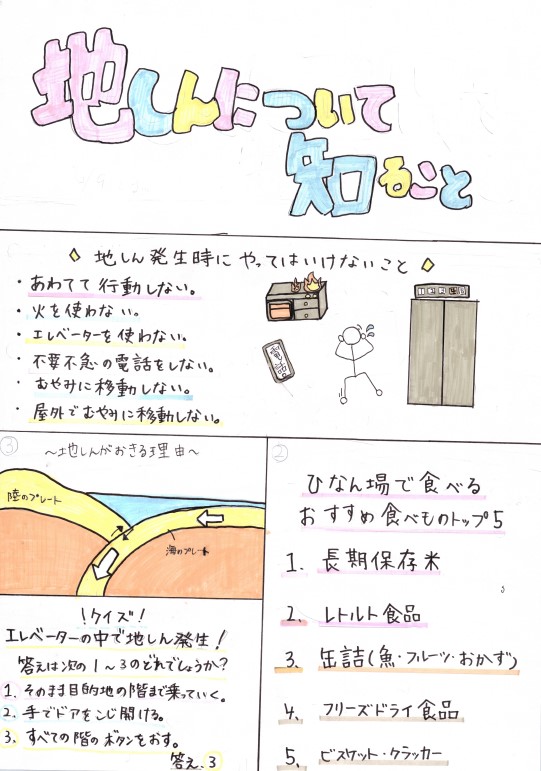 地しんについて
知ること
◇ 地しん発生時にやってはいけないこと ◇
・あわてて行動しない。
・火を使わない。
・エレベーターを使わない。
・不要不急の電話をしない。
・むやみに移動しない。
・屋外でむやみに移動しない。
電話
③
～地しんがおきる理由～
陸のプレート
海のプレート
!クイズ!
エレベーターの中で地しん発生!
答えは次の1～3のどれでしょうか?
1. そのまま目的地の階まで乗っていく。
2. 手でドアをこじ開ける。
3. すべての階のボタンをおす。
答え.3
②
ひなん場で食べる
おすすめ食べものトップ5
1. 長期保存米
2. レトルト食品
3. 缶詰(魚・フルーツ・おかず)
4. フリーズドライ食品
5. ビスケット・クラッカー